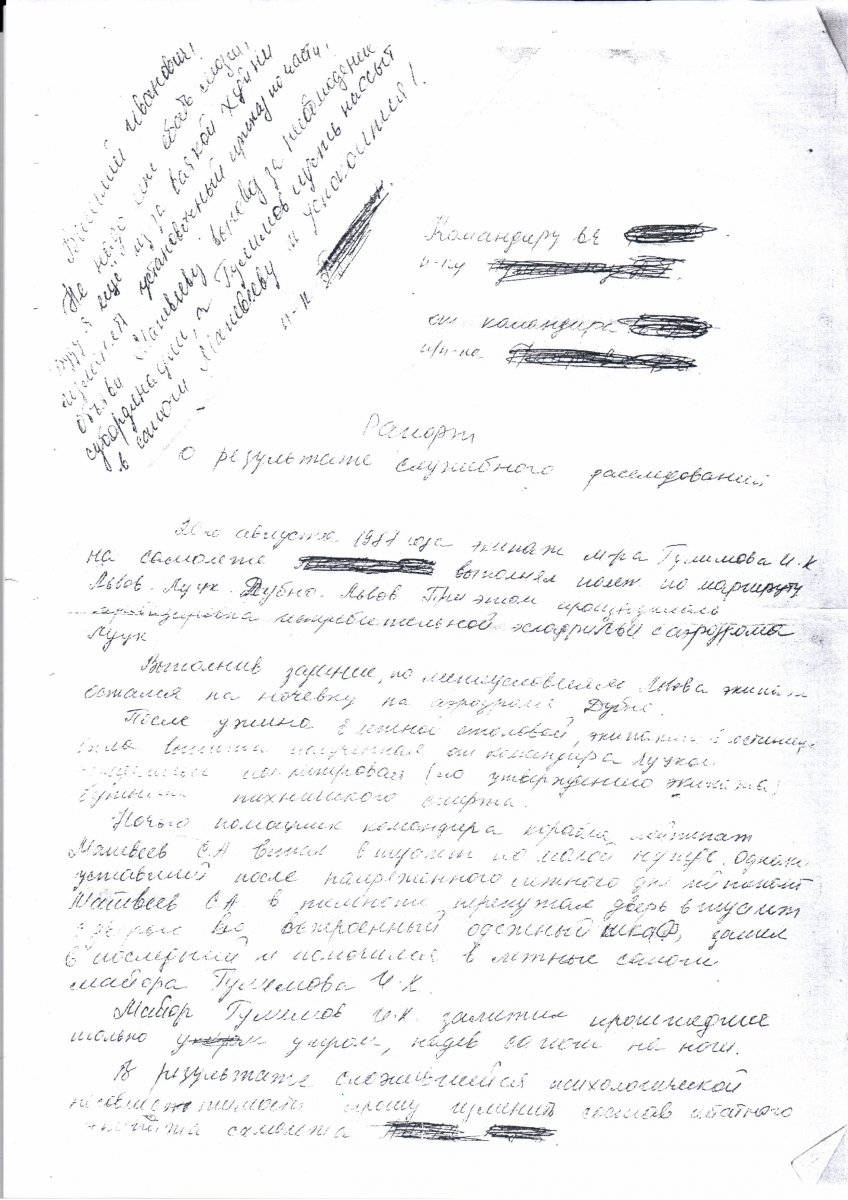 Василий Иванович!
Не надо мне ебать мозги,
буду я ещё из за всякой хуйни
изменять установочный приказ по части.
Объяви Матвееву выговор за несоблюдение
субординации, а Гулимов пусть нассыт
в сапоги Матвееву и успокоится!
п-к
Командиру вч
п-ку
от командира
п/п-ка
Рапорт
о результате служебного расследования
20го августа 1987 года экипаж м-ра Гулимова И.К
на самолете выполнял полет по маршруту
Львов - Луцк - Дубно - Львов При этом производилась
истребительной эскадрильи с аэродрома
Луцк
Выполнив задание, по метеоусловиям Львова экипаж
остался на ночевку на аэродроме Дубно.
После ужина в летной столовой, экипажем в гостинице
была выпита полученная от командира Луцкой
(по утверждению экипажа)
бутылка технического спирта.
Ночью помощник командира корабля лейтенант
Матвеев С.А встал в туалет по малой нужде. Однако
уставший после напряженного летного дня лейтенант
Матвеев С.А. в темноте перепутал дверь в туалет
с дверью во встроенный одежный шкаф, зашел
в последний и помочился в летные сапоги
майора Гулимова И.К.
Майор Гулимов И.К. заметил происшедшее
только утром, надев сапоги на ноги.
В результате сложившейся психологической
несовместимости прошу изменить состав штатного
экипажа самолета